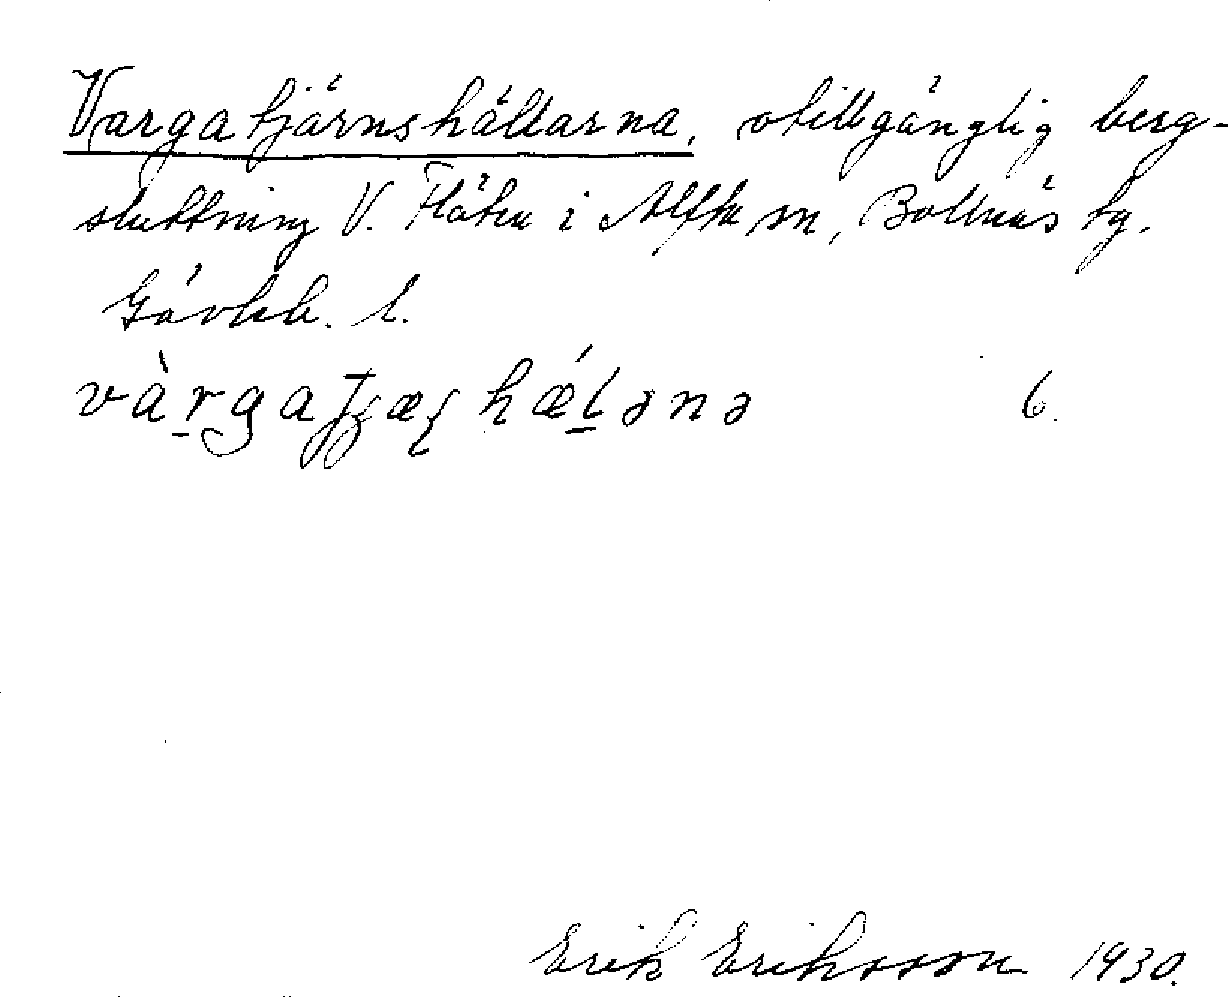 Vargatjärnshällarna, otillgänglig berg-
sluttning V. Fläten i Alfta sn, Bollnäs tg.
Gävleb. l.
vàrgaꞎæʂhǽlənə 6.
Erik Eriksson 1930.